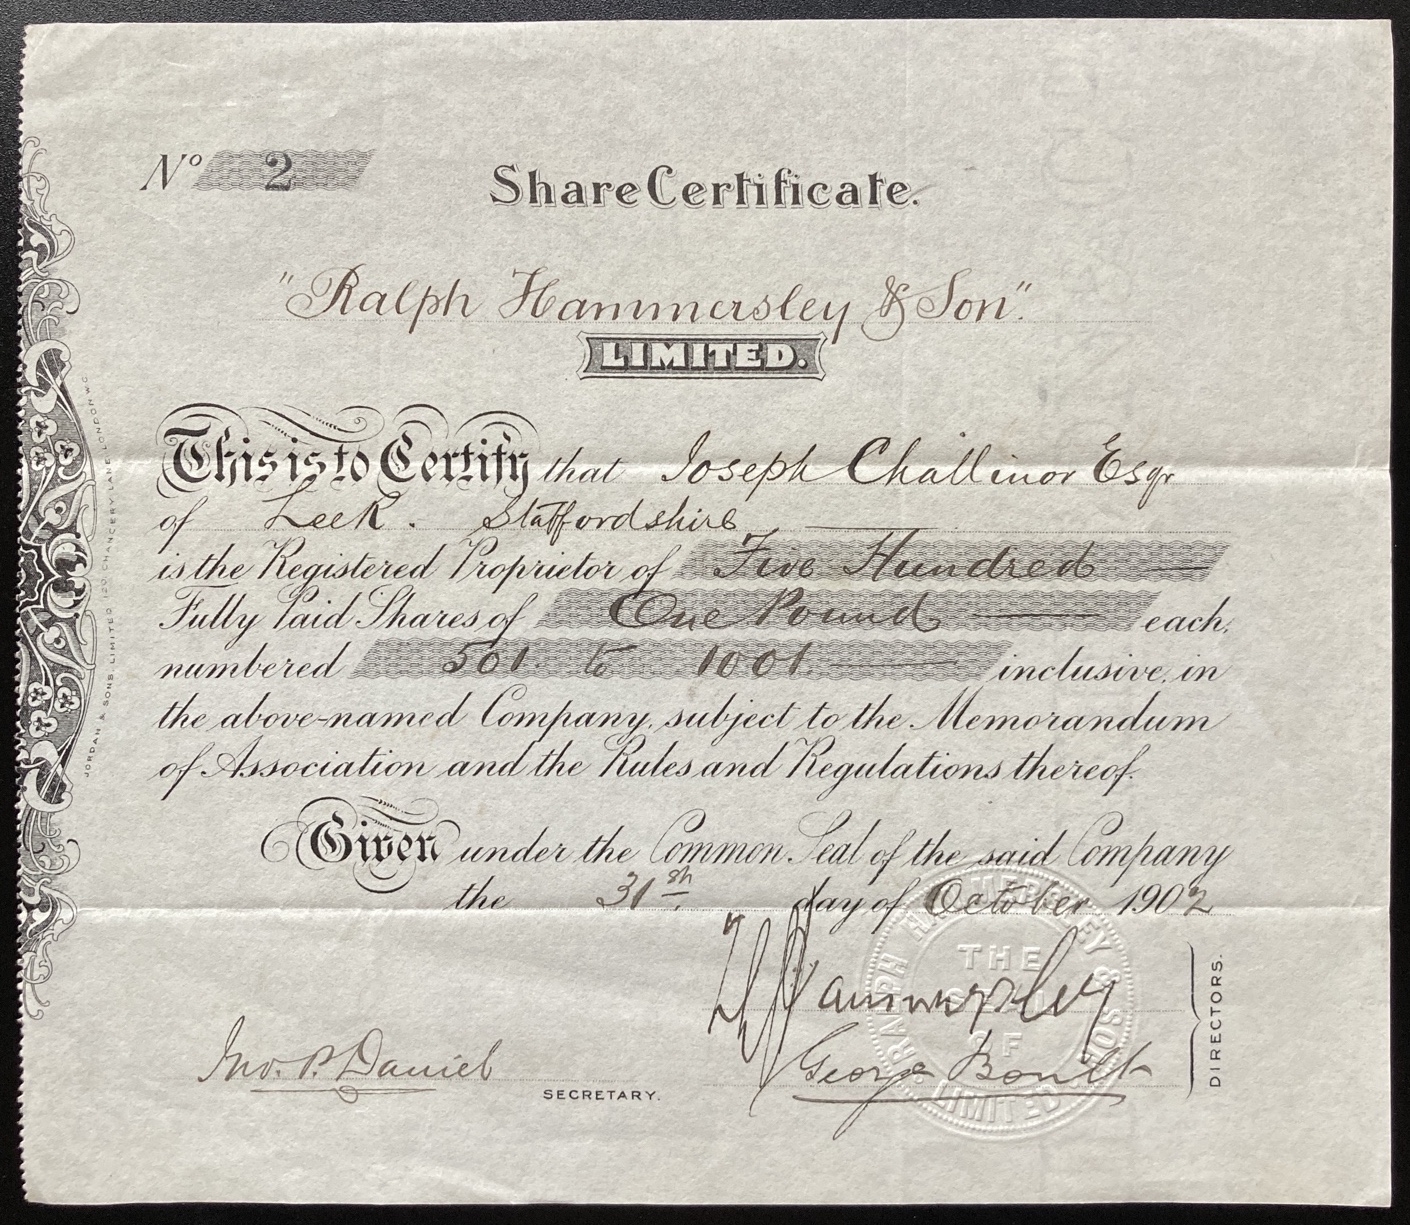 Nº 2
Share Certificate.
"Ralph Hammersley & Son".
LIMITED.
This is to Certify that Joseph Challinor Esqr
of Leek. Staffordshire
is the Registered Proprietor of Five Hundred
Fully Paid Shares of One Pound each,
numbered 501 to 1001 inclusive, in
the above-named Company, subject to the Memorandum
of Association and the Rules and Regulations thereof.
Given under the Common Seal of the said Company
the 31st day of October 1902
Hammersley
George Boult
DIRECTORS.
Jno. P. Daniel
SECRETARY.
RALPH HAMMERSLEY & SON LIMITED
THE
SEAL
OF
JORDAN & SONS, LIMITED, 120, CHANCERY LANE, LONDON W.C.